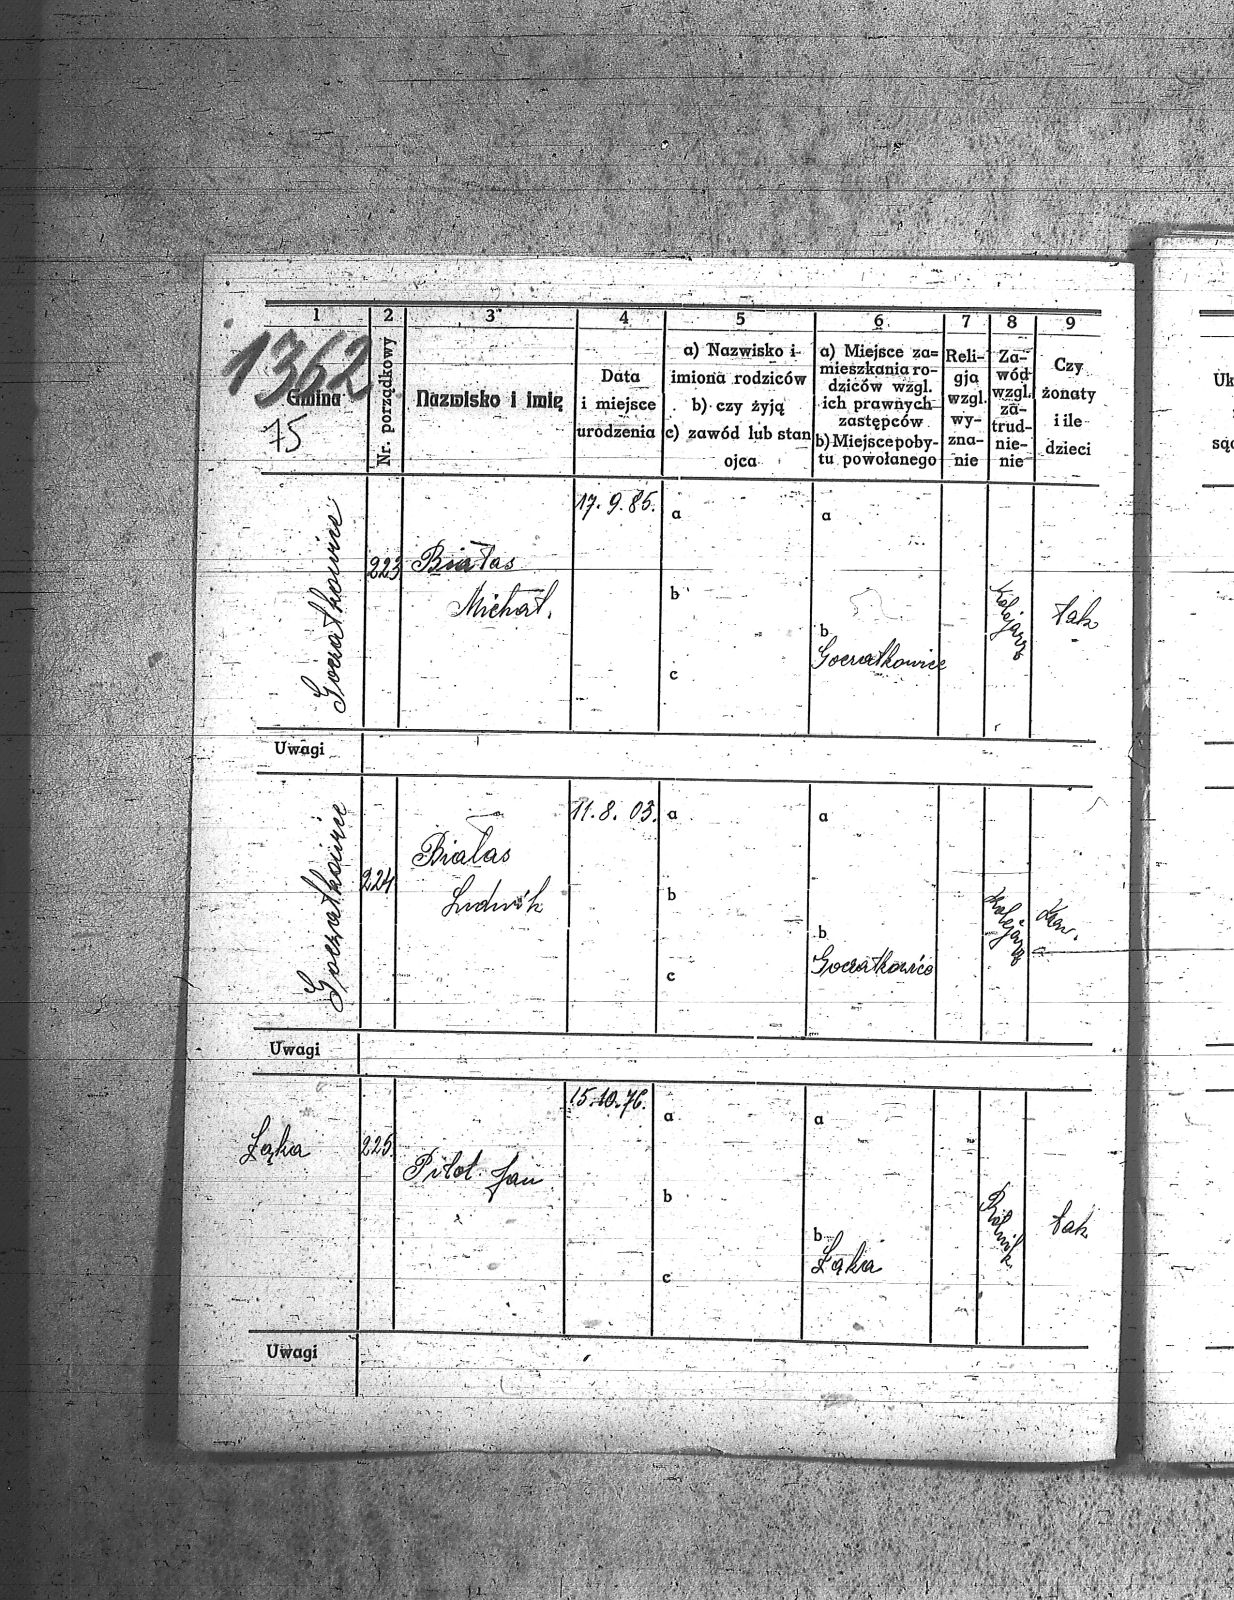 1 2 3 4 5 6 7 8 9
1362
Gmina
75
Nr. porządkowy
Nazwisko i imię
Data
i miejsce
urodzenia
a) Nazwisko i
imiona rodziców
b) czy żyją
c) zawód lub stan
ojca
a) Miejsce za=
mieszkania ro-
dziców wzgl.
ich prawnych
zastępców
b) Miejsce poby-
tu powołanego
Reli-
gja
wzgl.
wy-
zna-
nie
Za-
wód
wzgl.
za-
trud-
nie-
nie
Czy
żonaty
i ile
dzieci
Uk
są
Goczałkowice
223
Białas
Michał.
17.9.85.
a
b
c
a
b
Goczałkowice
Kolejarz
tak
Uwagi
Goczałkowice
224
Białas
Ludwik
11.8.03.
a
b
c
a
b
Goczałkowice
Kolejarz
Kaw.
Uwagi
Łąka
225.
Pitol Jan
15.10.76.
a
b
c
a
b
Łąka
Rolnik
tak
Uwagi